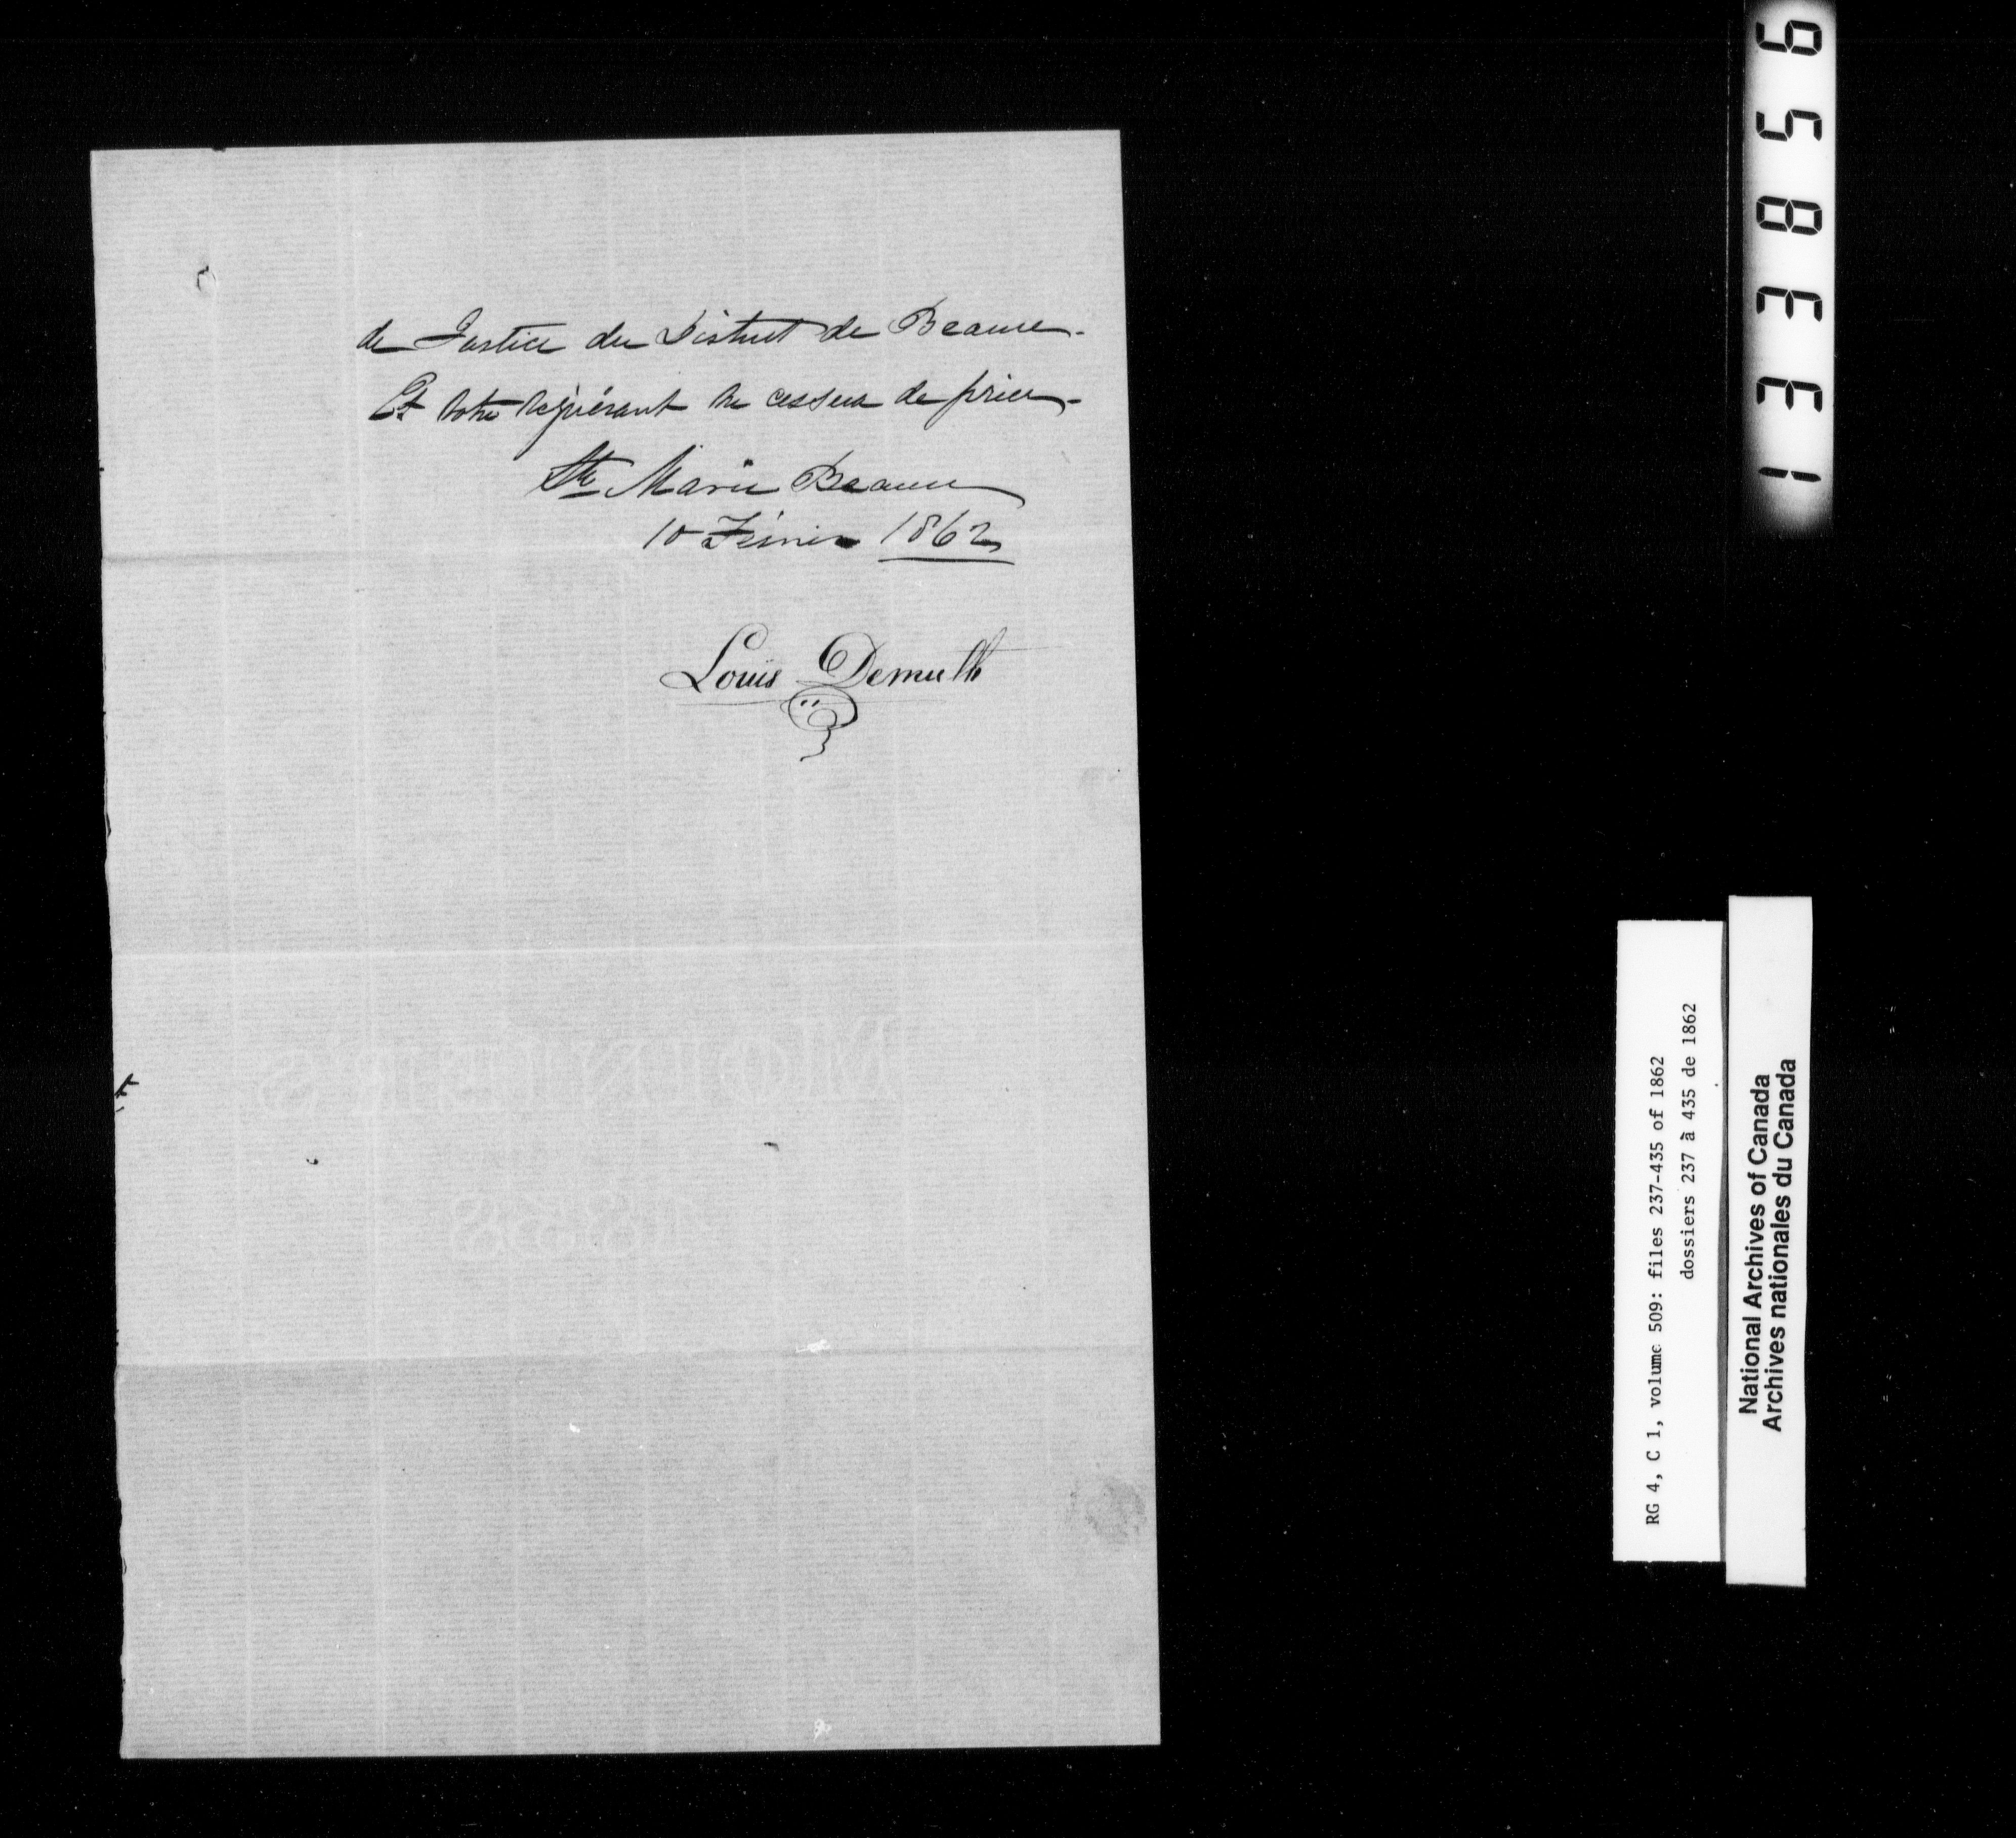 de Justice du District de Beauce.
Et votre requérant ne cessera de prier.
Ste Marie Beauce
10 Février 1862
Louis Demuth
133856
RG 4, C 1, volume 509: files 237-435 of 1862
dossiers 237 à 435 de 1862
National Archives of Canada
Archives nationales du Canada